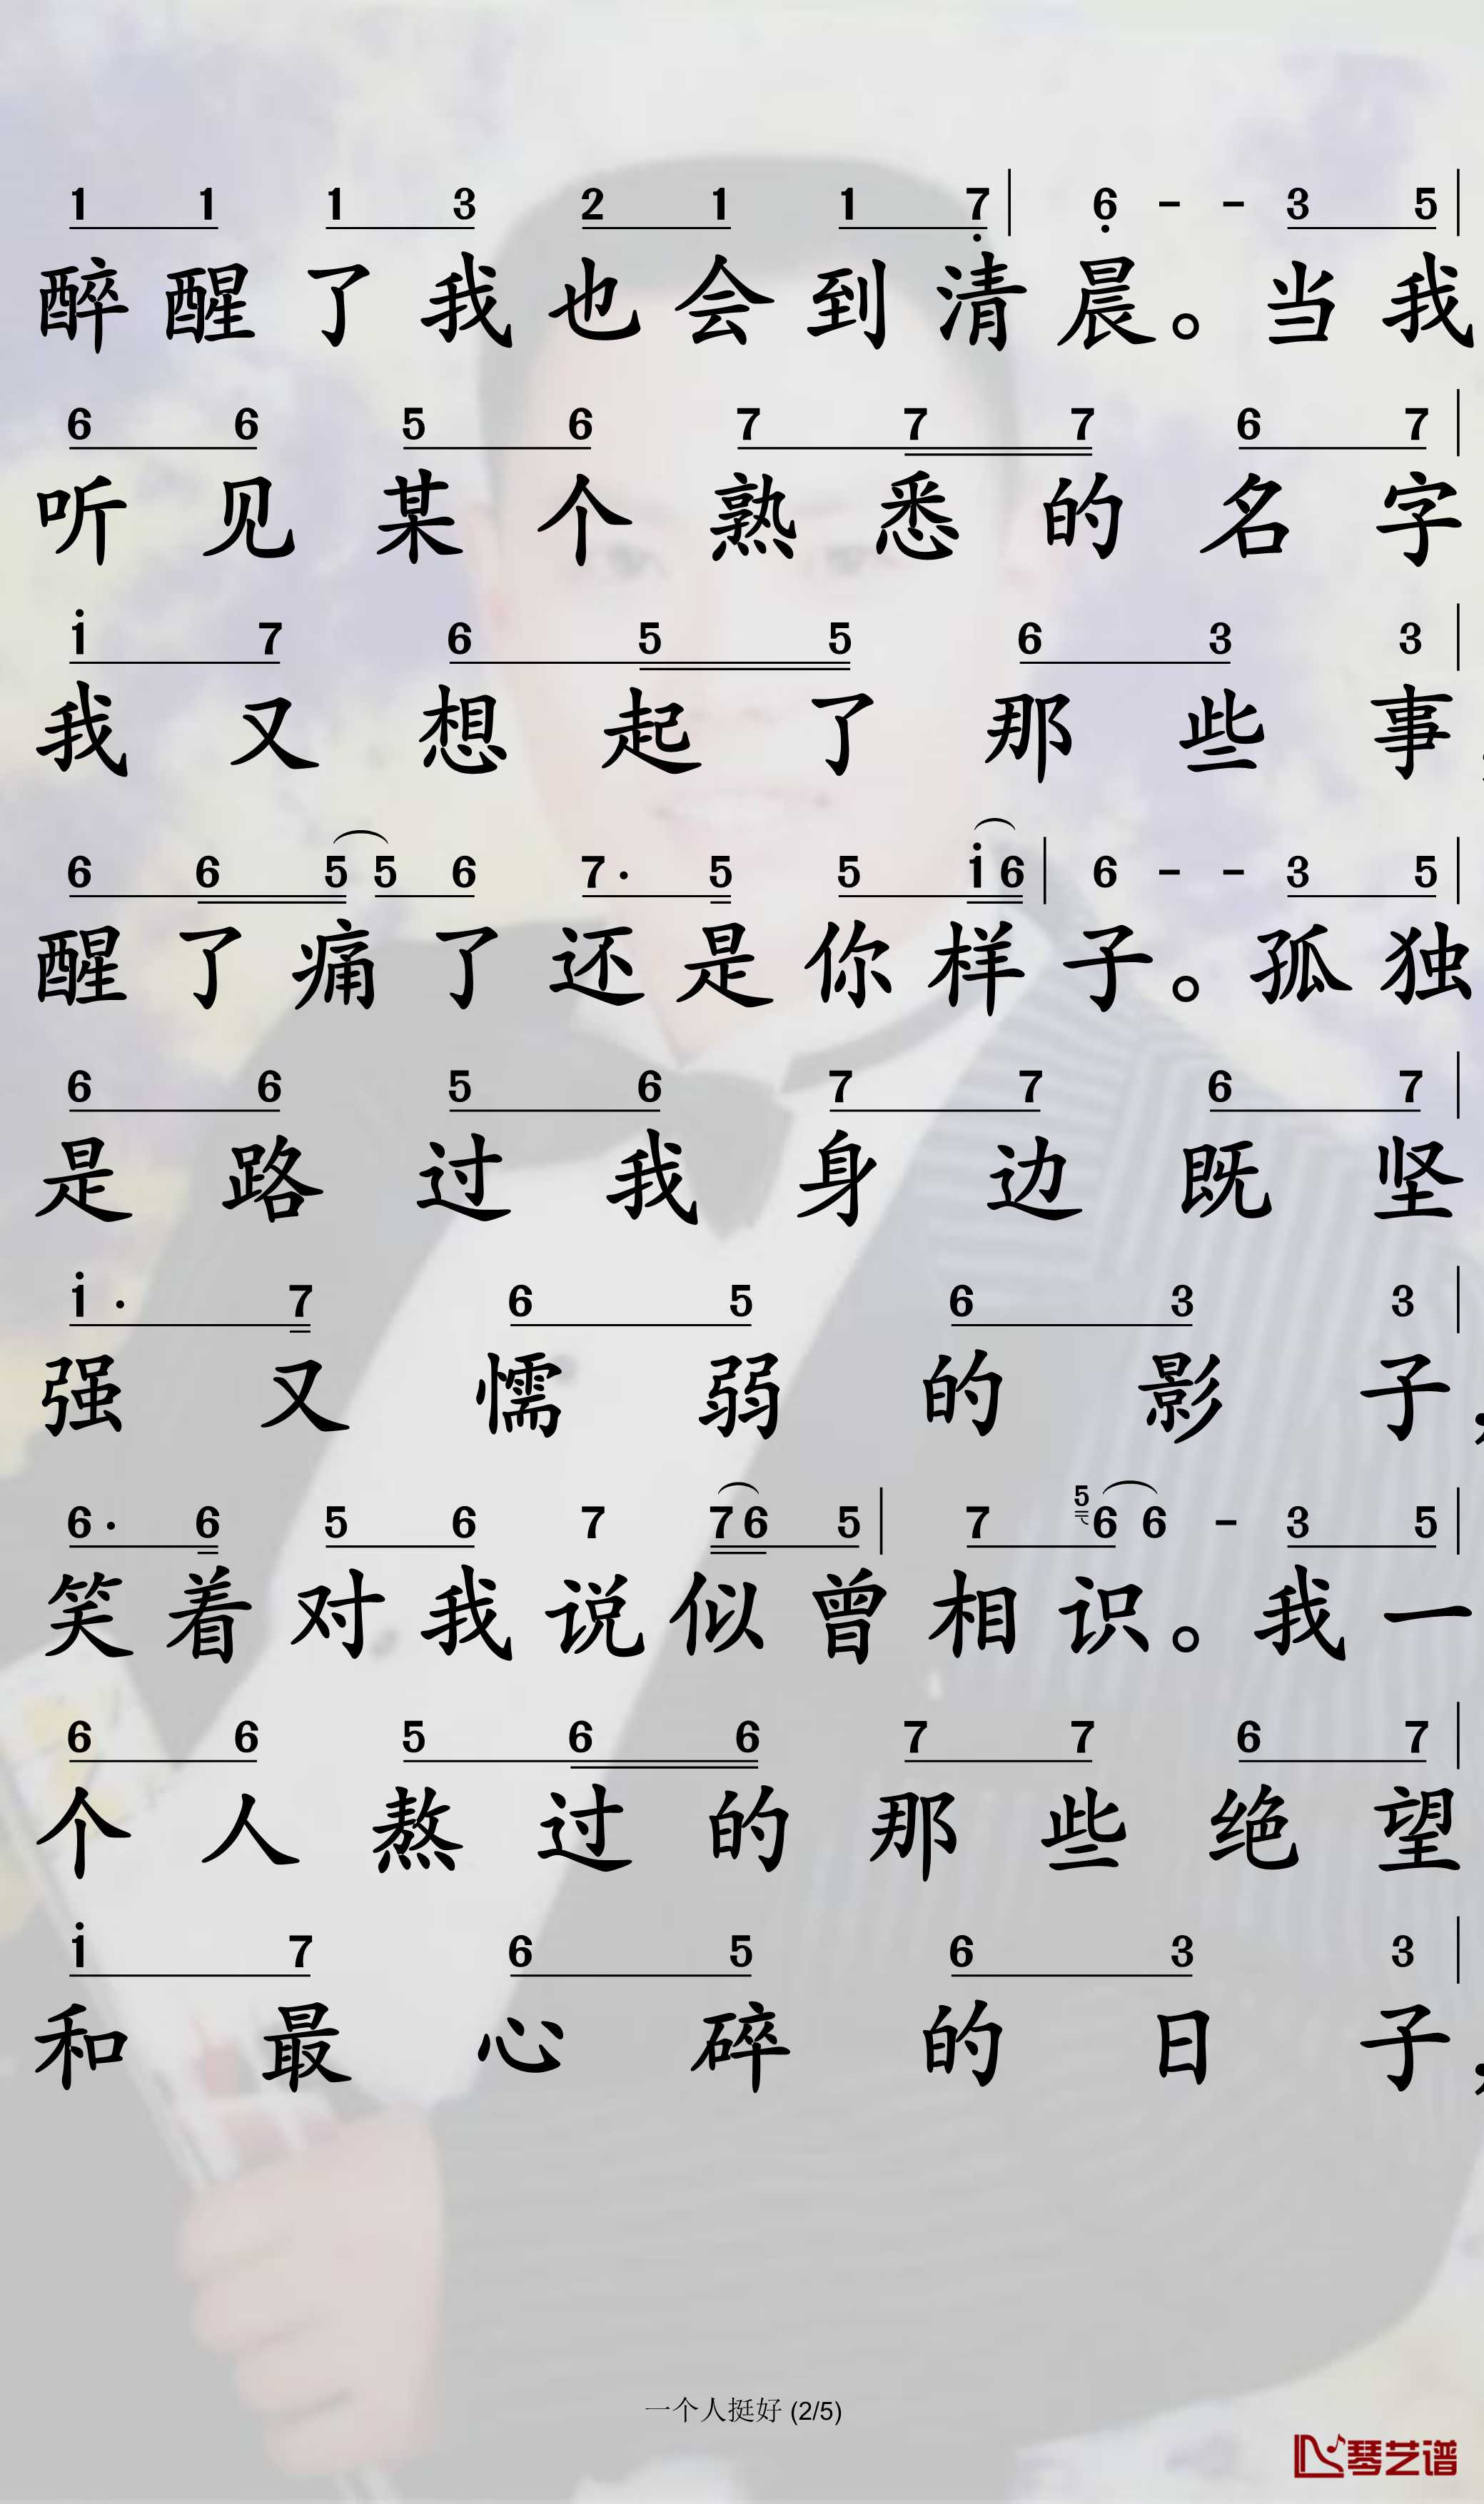 1 1 1 3 2 1 1 7̣ | 6̣ - - 3 5 |
醉醒了我也会到清晨。当我
6 6 5 6 7 7 7 6 7 |
听见某个熟悉的名字
i 7 6 5 5 6 3 3 |
我又想起了那些事,
6 6 5 5 6 7· 5 5 i 6 | 6 - - 3 5 |
醒了痛了还是你样子。孤独
6 6 5 6 7 7 6 7 |
是路过我身边既坚
i· 7 6 5 6 3 3 |
强又懦弱的影子,
6· 6 5 6 7 7 6 5 | 7 5 6 6 - 3 5 |
笑着对我说似曾相识。我一
6 6 5 6 6 7 7 6 7 |
个人熬过的那些绝望
i 7 6 5 6 3 3 |
和最心碎的日子,
一个人挺好 (2/5)
琴艺谱